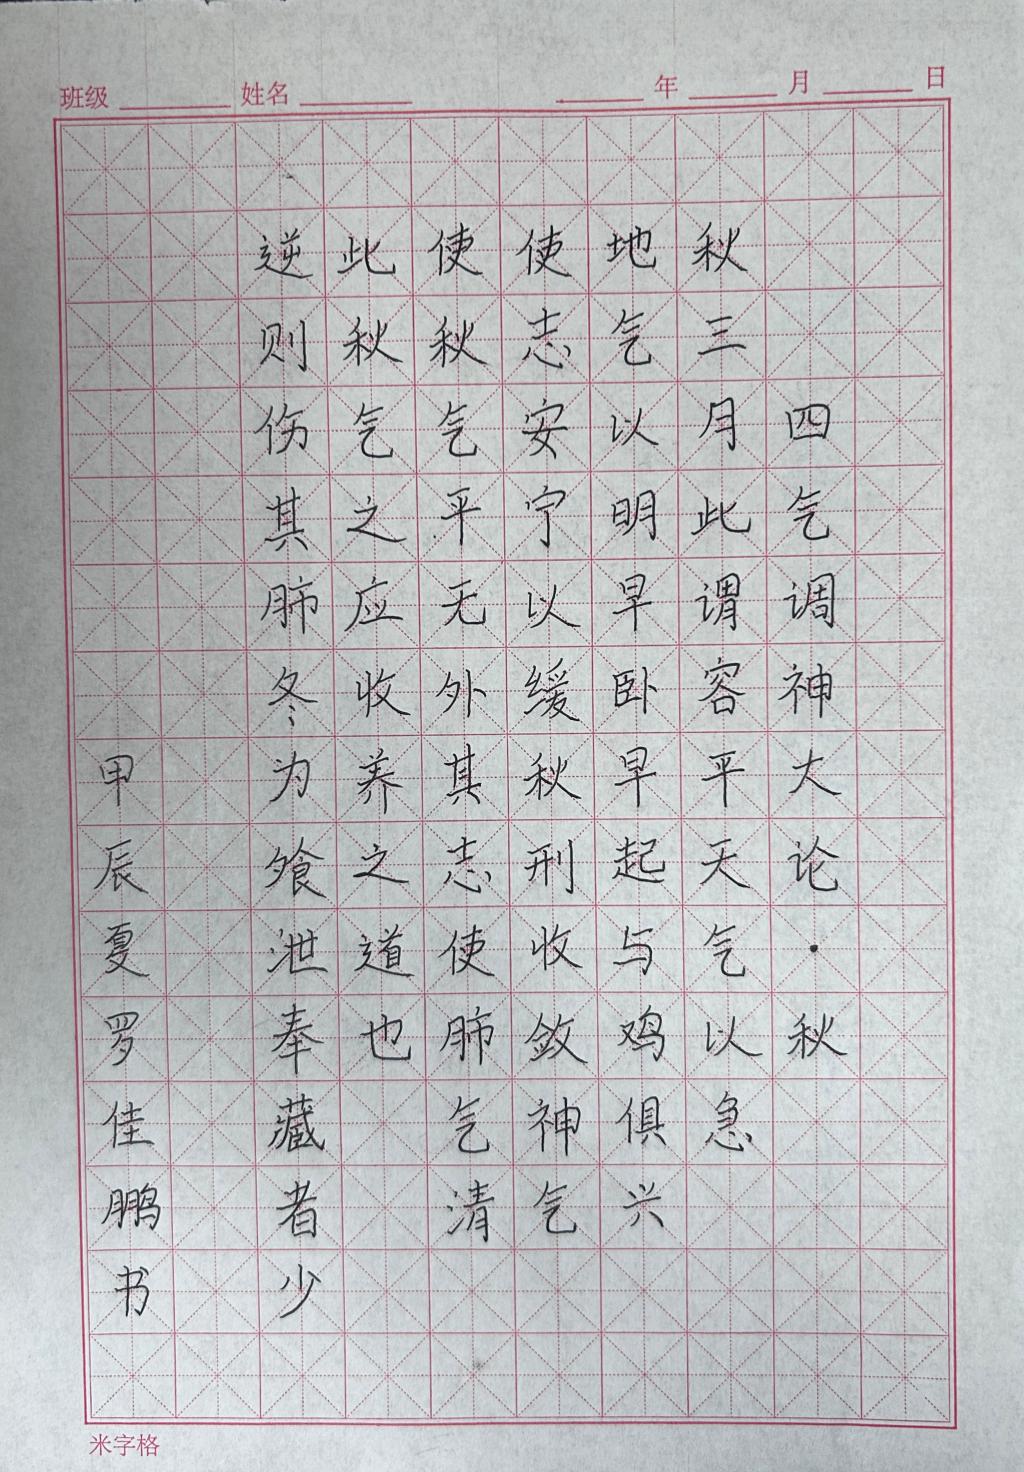 班级 姓名 年 月 日
四气调神大论·秋
秋三月此谓容平天气以急
地气以明早卧早起与鸡俱兴
使志安宁以缓秋刑收敛神气
使秋气平无外其志使肺气清
此秋气之应收养之道也
逆则伤其肺冬为飧泄奉藏者少
甲辰夏罗佳鹏书
米字格